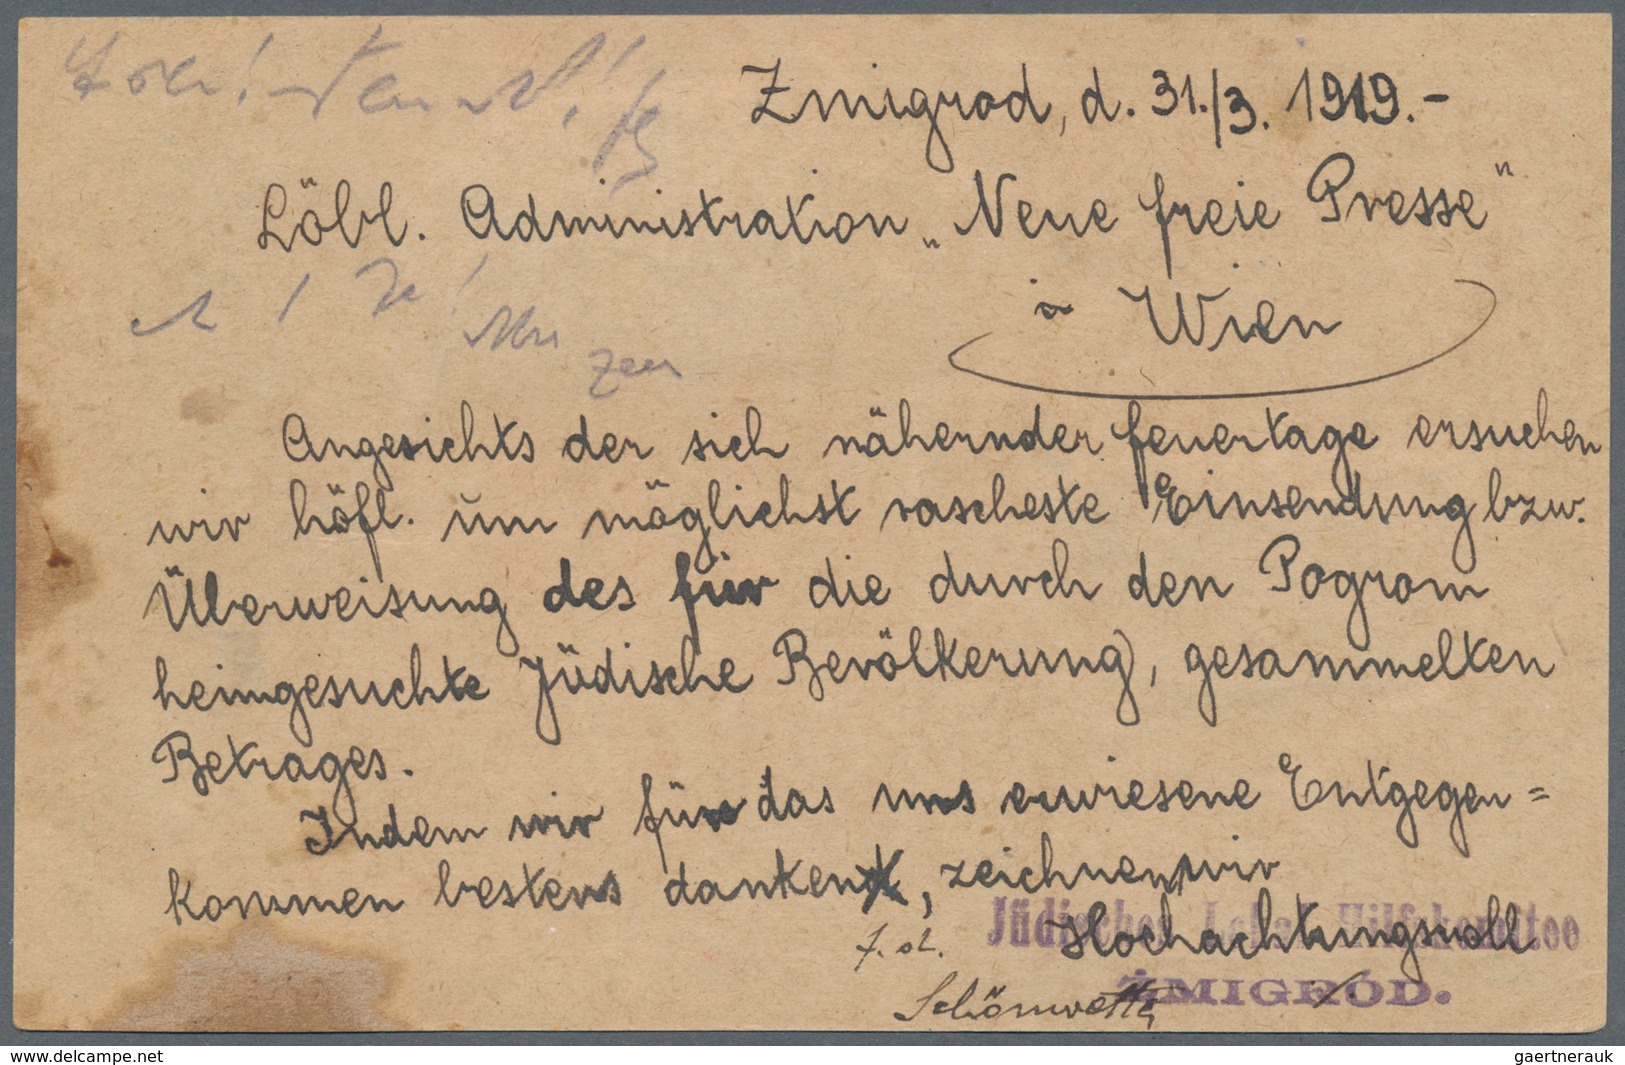 Zmigrod, d. 31./3. 1919.-
Löbl. Administration „Neue freie Presse"
in Wien
Angesichts der sich nähernder feuertage ersuchen
wir höfl. um möglichst rascheste Einsendung bzw.
Überweisung des für die durch den Pogrom
heimgesuchte Jüdische Bevölkerung, gesammelten
Betrages.
Indem wir für das uns erwiesene Entgegen=
kommen bestens danken, zeichnen wir
Hochachtungsvoll
Jüdisches Lokal-Hilfskomitee
ŻMIGRÓD.
www.delcampe.net
gaertnerauk